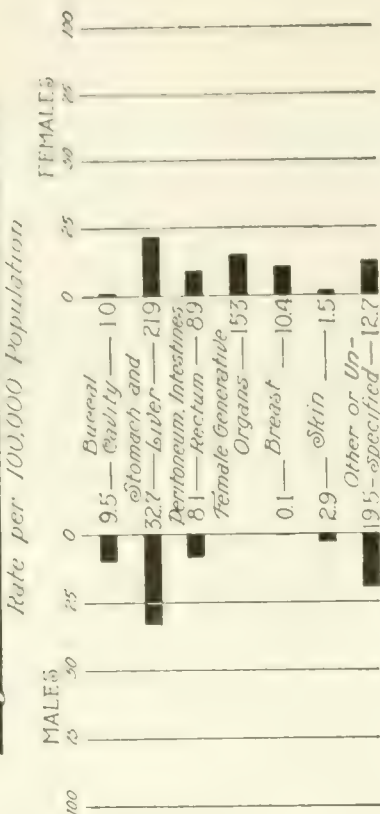 Rate per 100,000 Population
MALES
FEMALES
100 75 50 25 0
0 25 50 75 100
Buccal
9.5 — Cavity — 1.0
Stomach and
32.7 — Liver — 21.9
Peritoneum, Intestines
8.1 — Rectum — 8.9
Female Generative
Organs — 15.3
0.1 — Breast — 10.4
2.9 — Skin — 1.5
Other or Un-
19.5 - specified — 12.7